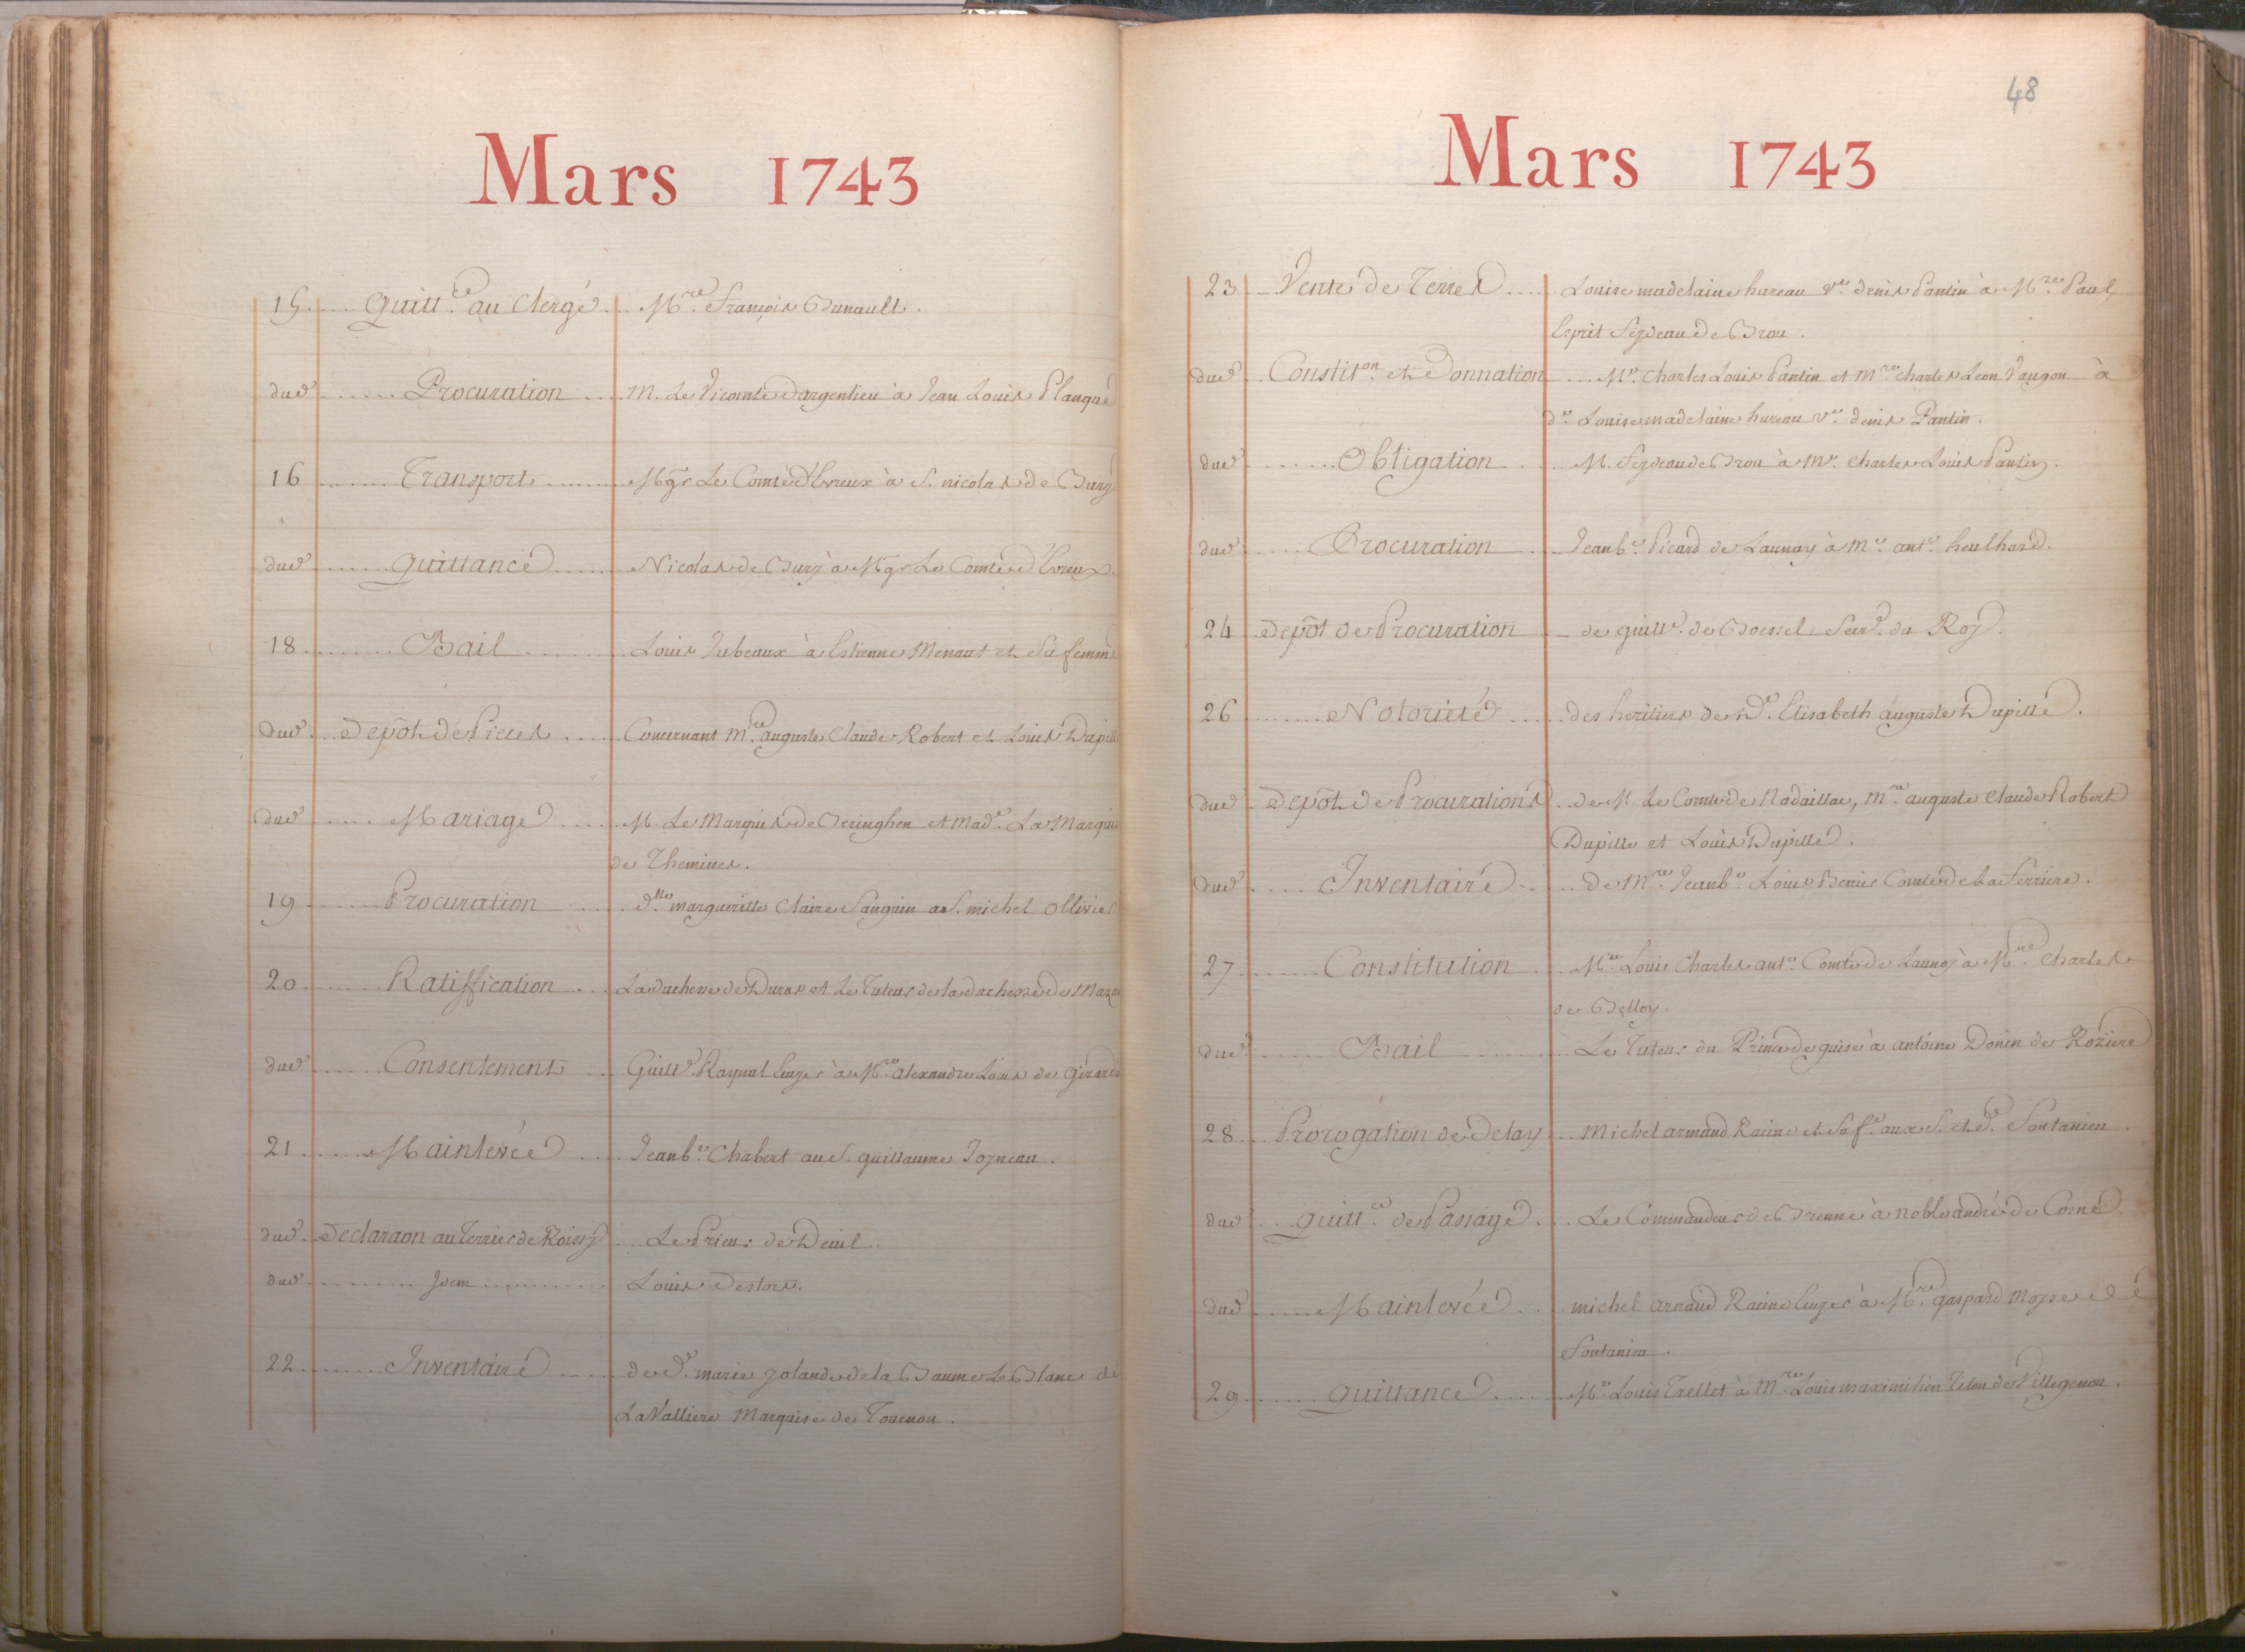 Mars 1743
15 Quitt.ce au Clergé M.re François Brunault.
dud. Procuration M. Le Vicomte d'argenlieu à Jean Louis Planque
16 Transport Mgr Le Comte d'Evreux à S. nicolas de Bury
dud. Quittance Nicolas de Bury à Mgr Le Comte d'Evreux.
18 Bail Louis Jubeaux à Estienne Menaut et Sa femme
dud. Depôt de Pieces Concernant M.re auguste Claude Robert et Louis Dupille
dud. Mariage M. Le Marquis de Beringhen et Mad.e La Marquise
de Themines.
19 Procuration d.lle marguerite Claire Sanguin a S. michel Ollivier
20 Ratiffication La duchesse de Duras et Le Tuteur de la duchesse de Maza
dud. Consentement Guill.e Raynal Leuger à M.re alexandre Louis de Girardin
21 Mainlevée Jean b.te Chabert au S. guillaume Joyneau.
dud. Declaraon au Terrier de Roissy Le Prieur de Deuil.
dud. Idem Louis Destors.
22 Inventaire de d.e marie yolande de la Baume Le Blanc de
La Valliere Marquise de Tournon.
48
Mars 1743
23 Vente de Terres Louise madelaine hureau v.e denis Pantin à M.re Paul
Esprit feydeau de Brou.
dud. Constit.on et Donnation M.e Charles Louis Pantin et M.re Charles Leon Vaugon à
d.e Louise madelaine hureau v.e denis Pantin.
dud. Obligation M. feydeau de Brou à M.e Charles Louis Pantin.
dud. Procuration Jean b.te Picard de Launay à M.e ant.e heulhard.
24 Depôt de Procuration de guill.e de Boessel Secr.e du Roy.
26 Notorieté des heritiers de D.e Elisabeth auguste Dupille.
dud. Depôt de Procurations de M. Le Comte de Nadaillac, M.re auguste Claude Robert
Dupille et Louis Dupille.
dud. Inventaire De M.re Jean b.te Louis Berrier Comte de La ferriere.
27 Constitution M.re Louis Charles ant.e Comte de Launoy à M.re Charles
de Belloy.
dud. Bail Le Tuteur du Prince de guise à antoine Donin de Roziere
28 Prorogation de delay Michel armand Racine et Sa f.e aux S. et d.e fontanieu.
dud. Quitt.ce de Passage Le Commandeur de Brenne à noble andré de Corne
dud. Mainlevée michel armand Racine Leuger à M.re gaspard Moyse de
fontanieu.
29 Quittance M.e Louis Trellet à M.re Louis maximilien Titon de Villegenon.